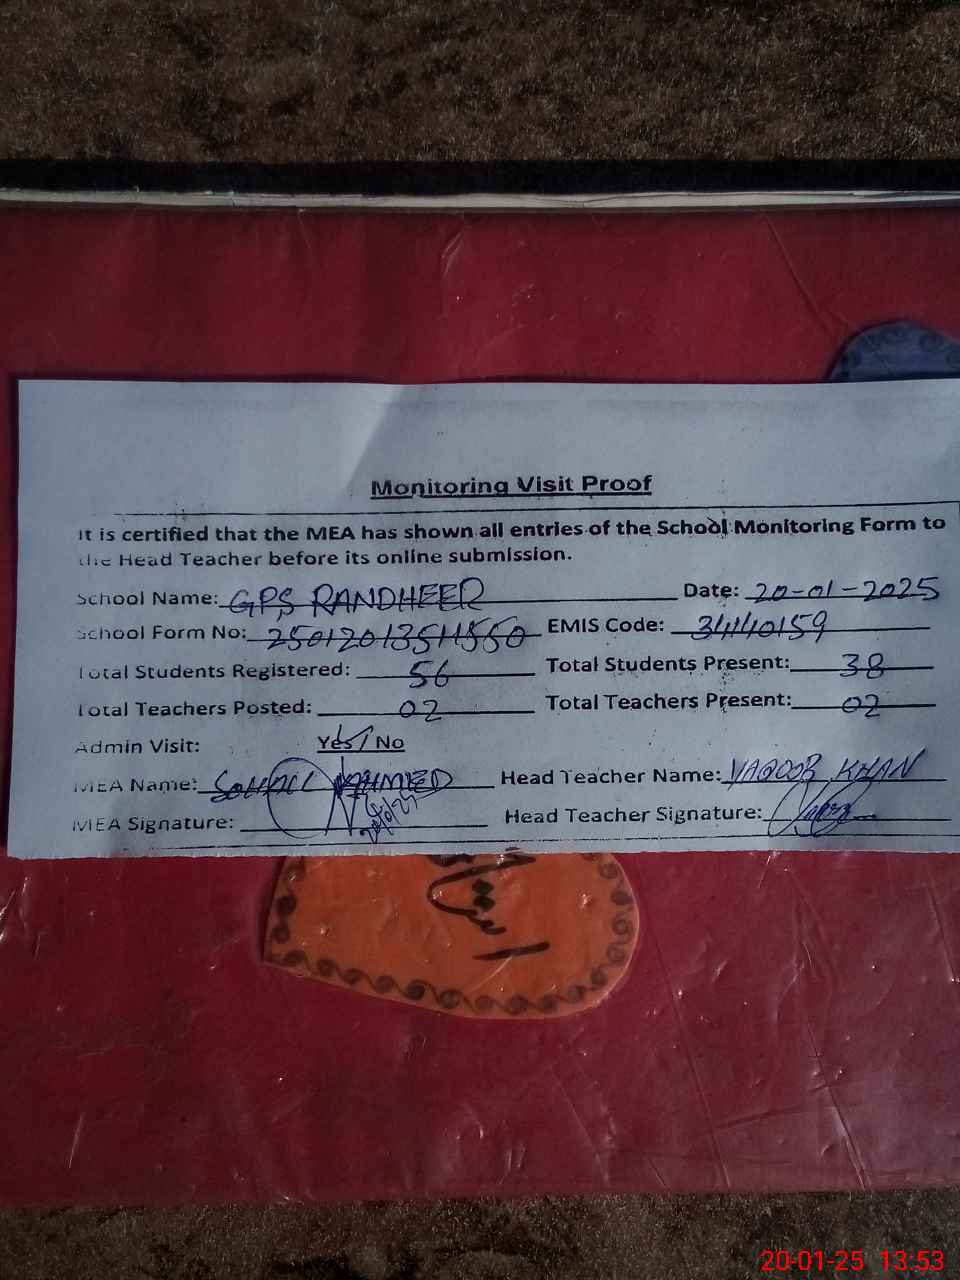 Monitoring Visit Proof
It is certified that the MEA has shown all entries of the School Monitoring Form to
the Head Teacher before its online submission.
School Name: GPS RANDHEER Date: 20-01-2025
School Form No: EMIS Code: 34140159
Total Students Registered: 56 Total Students Present: 38
Total Teachers Posted: 02 Total Teachers Present: 02
Admin Visit: Yes / No
MEA Name: SOHAIL AHMED Head Teacher Name: YAQOOB KHAN
MEA Signature: Head Teacher Signature:
20-01-25 13:53